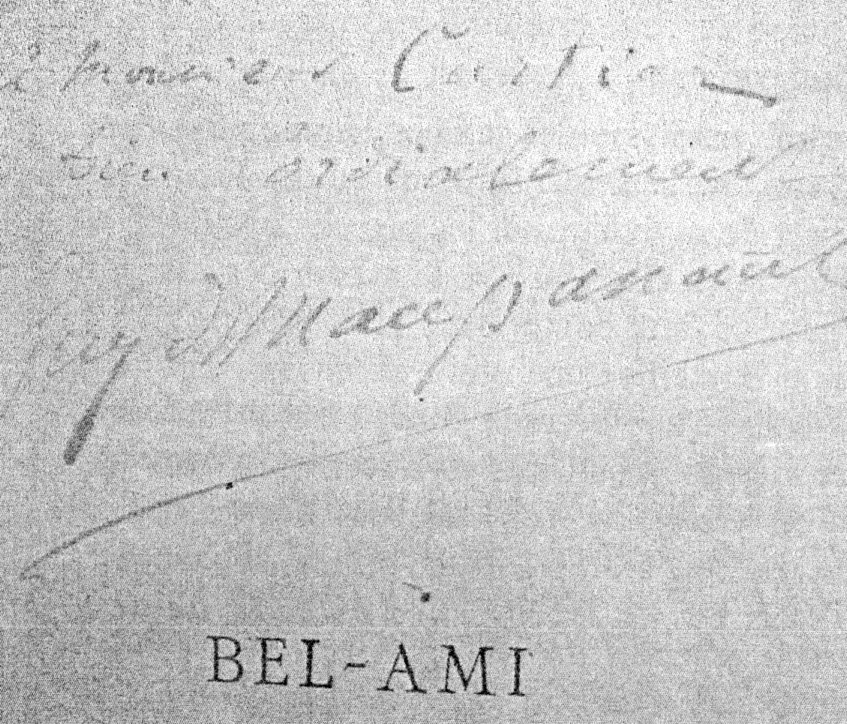 à Monsieur Cartier
bien cordialement
Guy de Maupassant
BEL-AMI